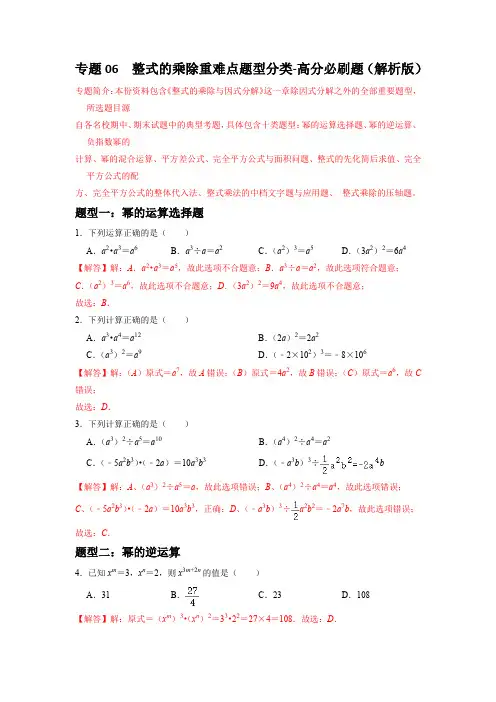 专题06 整式的乘除重难点题型分类-高分必刷题（解析版）
专题简介：本份资料包含《整式的乘除与因式分解》这一章除因式分解之外的全部重要题型，
所选题目源
自各名校期中、期末试题中的典型考题，具体包含十类题型：幂的运算选择题、幂的逆运算、
负指数幂的
计算、幂的混合运算、平方差公式、完全平方公式与面积问题、整式的先化简后求值、完全
平方公式的配
方、完全平方公式的整体代入法、整式乘法的中档文字题与应用题、 整式乘除的压轴题。
题型一：幂的运算选择题
1．下列运算正确的是（ ）
A．a²•a³＝a⁶ B．a³÷a＝a² C．（a²）³＝a⁵ D．（3a²）²＝6a⁴
【解答】解：A．a²•a³＝a⁵，故此选项不合题意；B．a³÷a＝a²，故此选项符合题意；
C．（a²）³＝a⁶，故此选项不合题意；D．（3a²）²＝9a⁴，故此选项不合题意；
故选：B．
2．下列计算正确的是（ ）
A．a³•a⁴＝a¹² B．（2a）²＝2a²
C．（a³）²＝a⁹ D．（﹣2×10²）³＝﹣8×10⁶
【解答】解：（A）原式＝a⁷，故A错误；（B）原式＝4a²，故B错误；（C）原式＝a⁶，故C
错误；
故选：D．
3．下列计算正确的是（ ）
A．（a³）²÷a⁵＝a¹⁰ B．（a⁴）²÷a⁴＝a²
C．（﹣5a²b³）•（﹣2a）＝10a³b³ D．（﹣a³b）³÷½a²b²＝﹣2a⁴b
【解答】解：A、（a³）²÷a⁵＝a，故此选项错误；B、（a⁴）²÷a⁴＝a⁴，故此选项错误；
C、（﹣5a²b³）•（﹣2a）＝10a³b³，正确；D、（﹣a³b）³÷½a²b²＝﹣2a⁷b，故此选项错误；
故选：C．
题型二：幂的逆运算
4．已知xᵐ＝3，xⁿ＝2，则x³ᵐ⁺²ⁿ的值是（ ）
A．31 B．27/4 C．23 D．108
【解答】解：原式＝（xᵐ）³•（xⁿ）²＝3³•2²＝27×4＝108．故选：D．